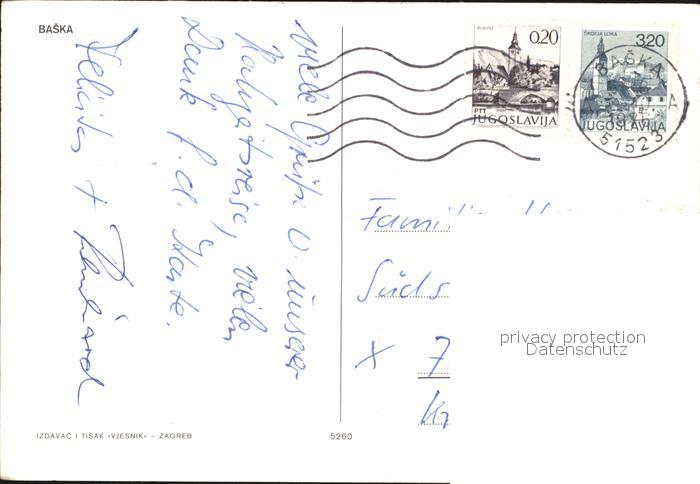 BAŠKA
Viele Grüße v. unserer
Haupt reise, vielen
Dank f. d. Karte.
Felicitas + Reinhard
BOHINJ
0.20
PTT
JUGOSLAVIJA
ŠKOFJA LOKA
3.20
JUGOSLAVIJA
BAŠKA
51523
Famili
Süds
X 7
Kr
privacy protection
Datenschutz
IZDAVAČ I TISAK «VJESNIK» – ZAGREB
5260